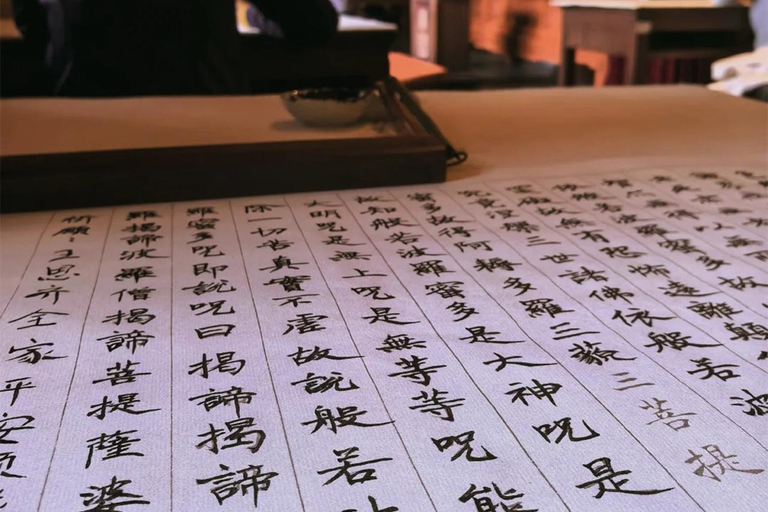 罣礙故無有恐怖遠離顛
究竟涅槃三世諸佛依般若波
蜜多故得阿耨多羅三藐三菩提
故知般若波羅蜜多是大神咒是
大明咒是無上咒是無等等咒能
除一切苦真實不虛故說般若
羅蜜多咒即說咒曰揭諦揭諦
羅揭諦波羅僧揭諦菩提薩婆
祈願:王思齐全家平安